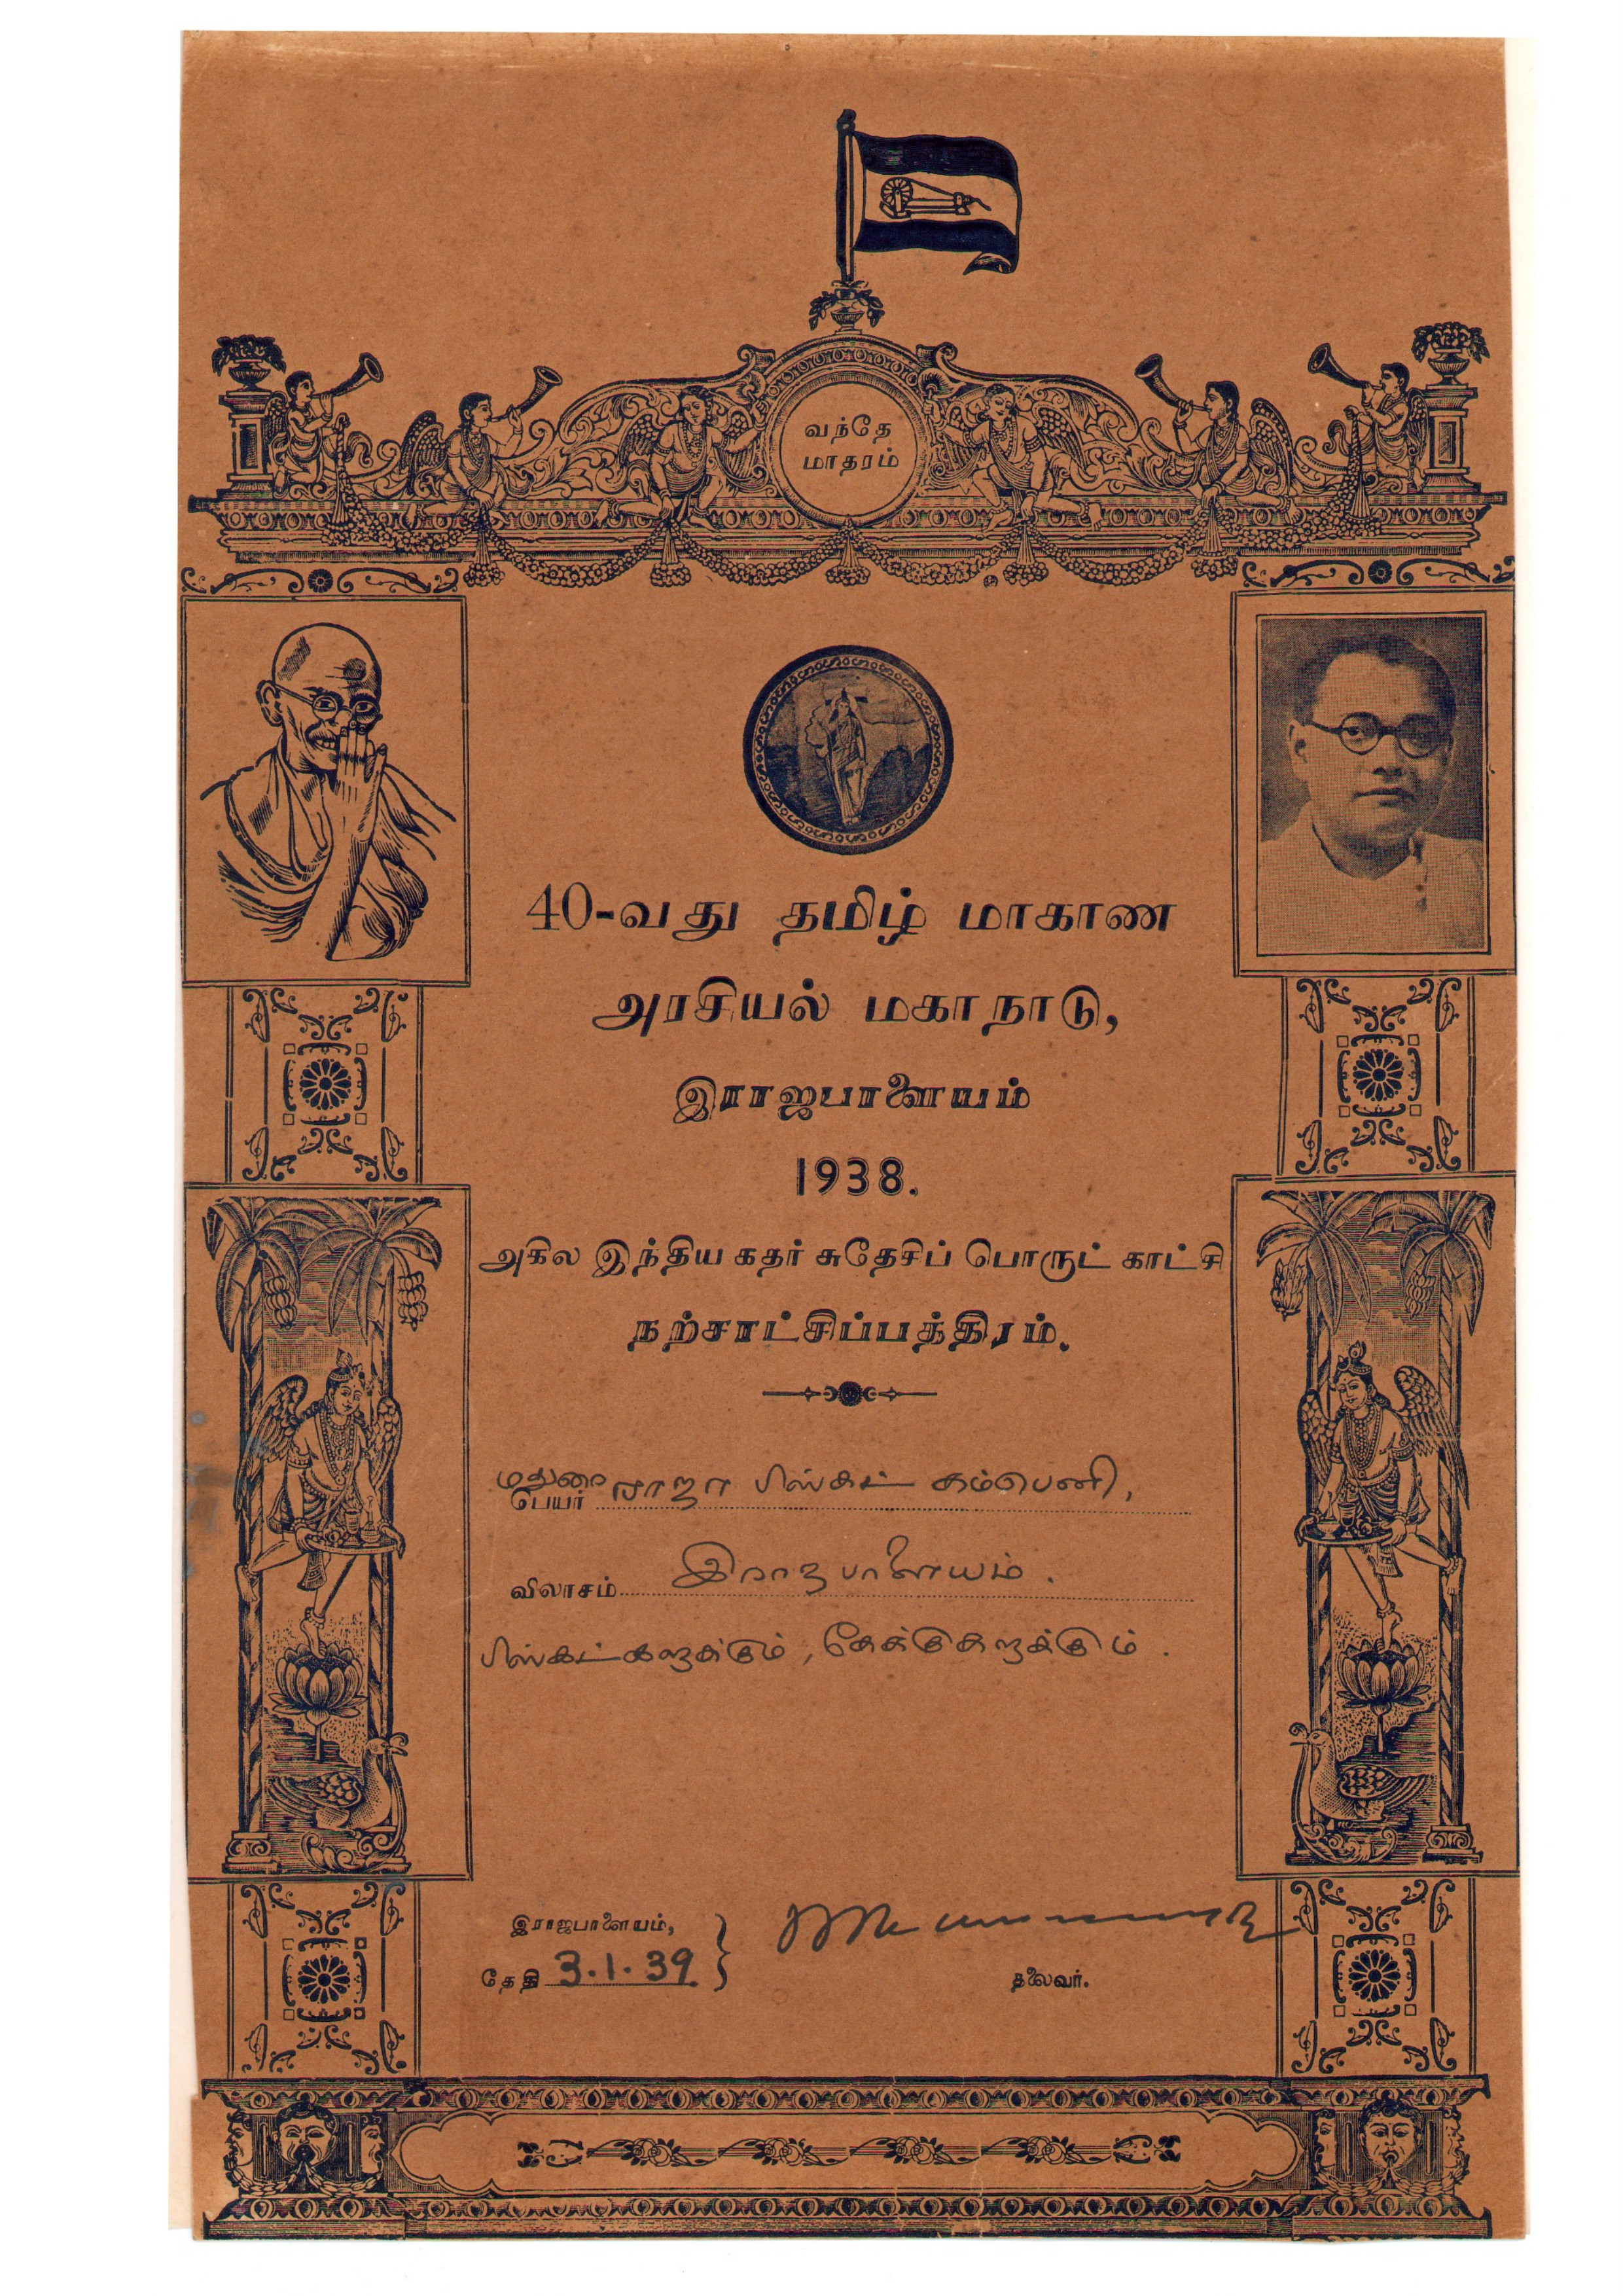 வந்தே
மாதரம்
40-வது தமிழ் மாகாண
அரசியல் மகாநாடு,
இராஜபாளையம்
1938.
அகில இந்திய கதர் சுதேசிப் பொருட் காட்சி
நற்சாட்சிப்பத்திரம்.
மதுரை
பேயர் ராஜா பிஸ்கட் கம்பெனி,
விலாசம் இராஜபாளையம்.
பிஸ்கட்களுக்கும், கேக்குகளுக்கும்.
இராஜபாளையம்,
தேதி 3.1.39
தலைவர்.